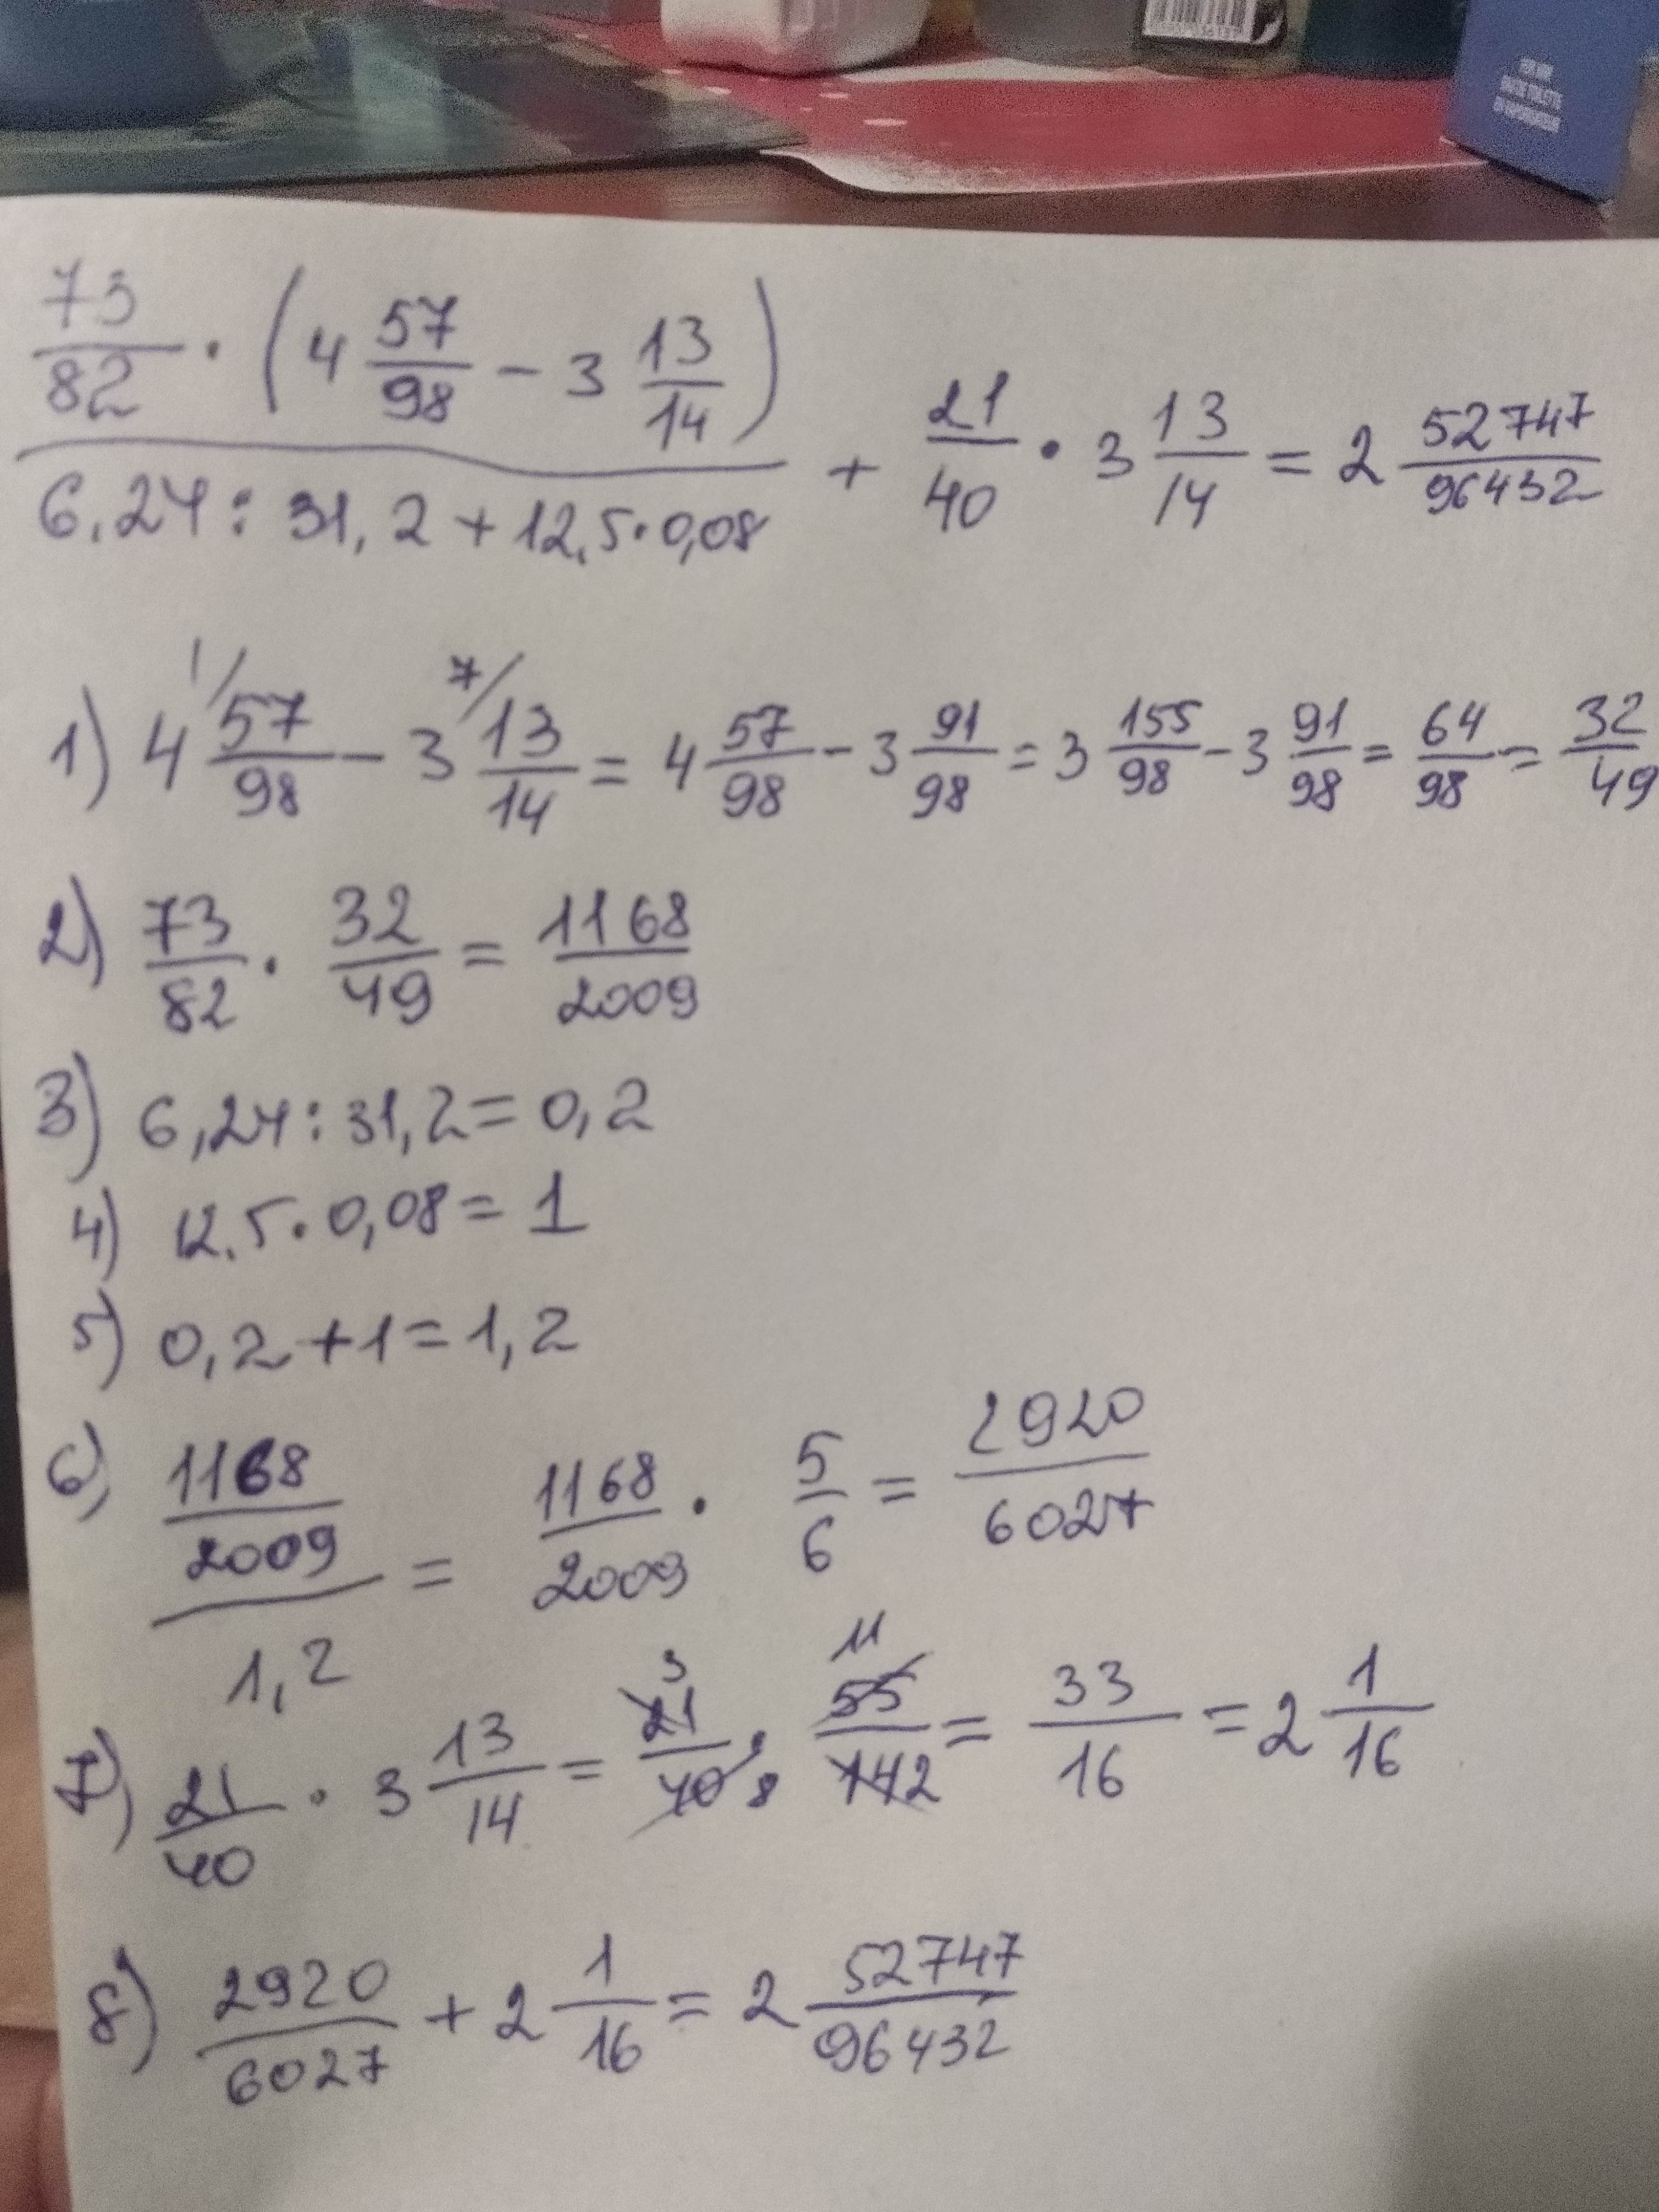 73/82 · (4 57/98 - 3 13/14)
6,24 : 31,2 + 12,5 · 0,08
+ 21/40 · 3 13/14 = 2 52747/96432
1) 4 57/98 - 3 13/14 = 4 57/98 - 3 91/98 = 3 155/98 - 3 91/98 = 64/98 = 32/49
2) 73/82 · 32/49 = 1168/2009
3) 6,24 : 31,2 = 0,2
4) 12,5 · 0,08 = 1
5) 0,2 + 1 = 1,2
6) 1168/2009 / 1,2 = 1168/2009 · 5/6 = 2920/6027
7) 21/40 · 3 13/14 = 21/40 · 55/14 = 33/16 = 2 1/16
8) 2920/6027 + 2 1/16 = 2 52747/96432